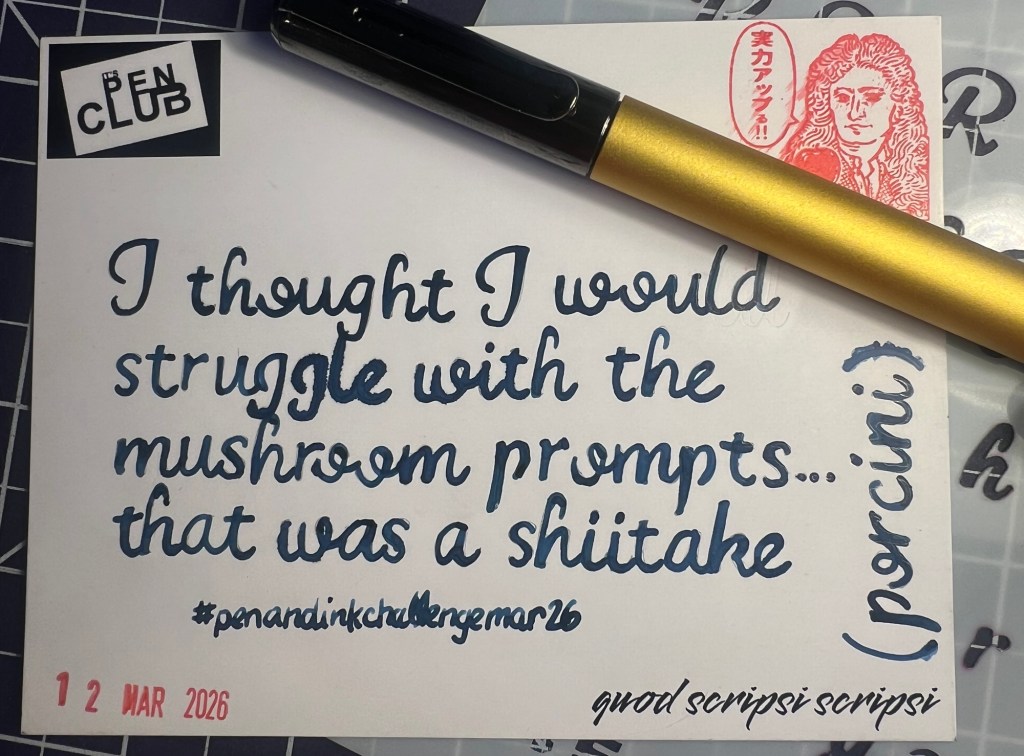 IT'S
PEN
CLUB
実力アップる!!
I thought I would
struggle with the
mushroom prompts...
that was a shiitake
(porcini)
#penandinkchallengemar26
12 MAR 2026
quod scripsi scripsi
R
h
r